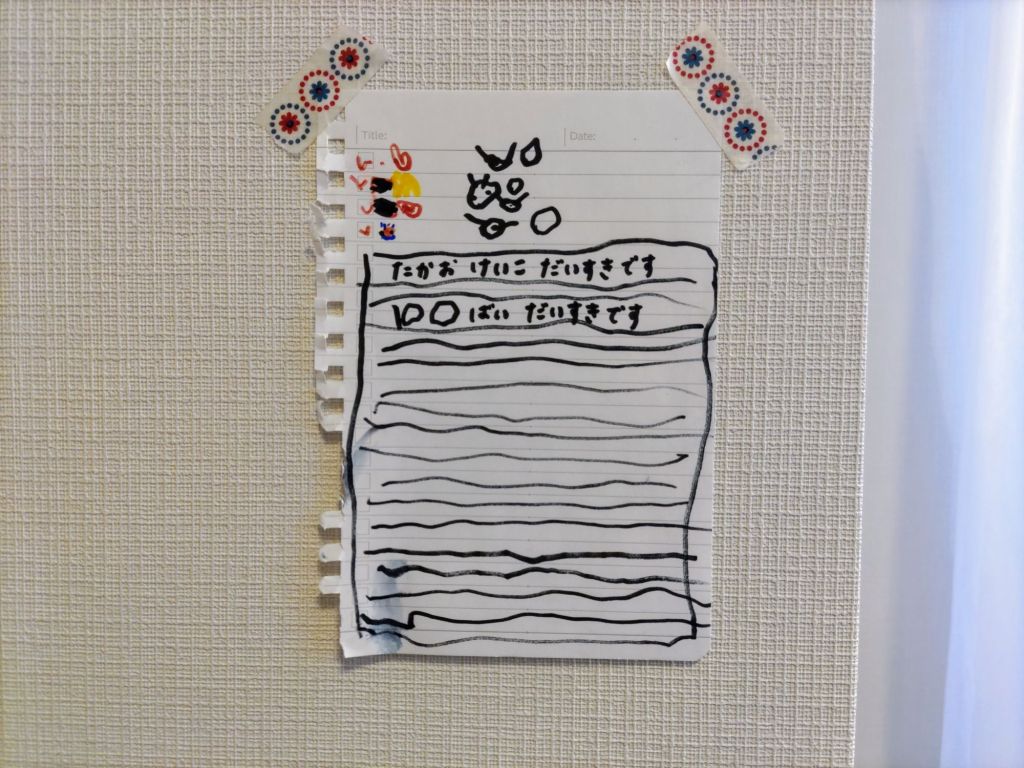 Title: Date:
たかお けいこ だいすきです
100ばい だいすきです